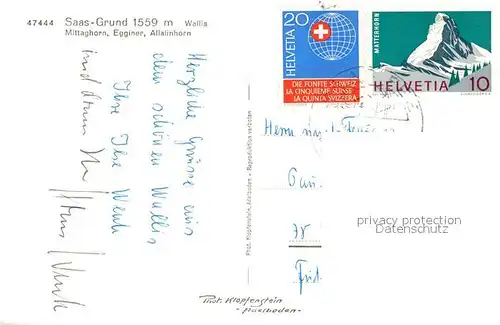 47444 Saas-Grund 1559 m Wallis
Mittaghorn, Egginer, Allalinhorn
Herzliche Grüsse aus
dem schönen Wallis
Ihre Ilse Wenk
und
Phot. Klopfenstein, Adelboden - Reproduktion verboten
20
HELVETIA
DIE FÜNFTE SCHWEIZ
LA CINQUIEME SUISSE
LA QUINTA SVIZZERA
MATTERHORN
HELVETIA 10
Herrn
78
privacy protection
Datenschutz
Phot. Klopfenstein
- Adelboden -